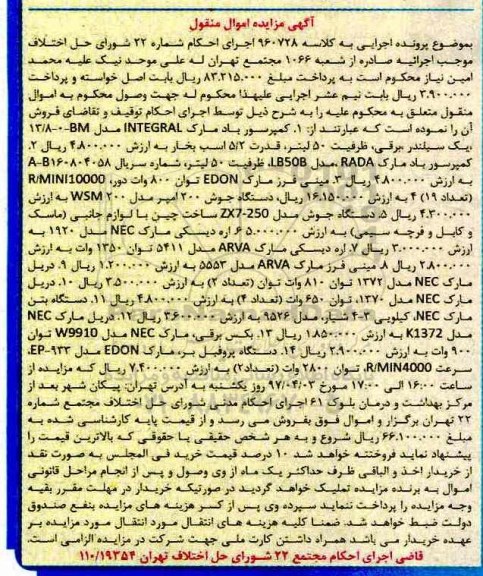 آگهی مزایده اموال منقول
بموضوع پرونده اجرایی به کلاسه ۹۶۰۷۲۸ اجرای احکام شماره ۲۲ شورای حل اختلاف
موجب اجرائیه صادره از شعبه ۱۰۶۶ مجتمع تهران له علی موحد نیک علیه محمد
امین نیاز محکوم است به پرداخت مبلغ ۸۳.۳۱۵.۰۰۰ ریال بابت اصل خواسته و پرداخت
۳.۹۰۰.۰۰۰ ریال بابت نیم عشر اجرایی علیهذا محکوم له جهت وصول محکوم به اموال
منقول متعلق به محکوم علیه را به شرح ذیل توسط اجرای احکام توقیف و تقاضای فروش
آن را نموده است که عبارتند از: ۱. کمپرسور باد مارک INTEGRAL مدل ۱۳/۸-۰-BM
،یک سیلندر ،برقی، ظرفیت ۵۰ لیتر، قدرت ۵/۲ اسب بخار به ارزش ۴.۸۰۰.۰۰۰ ریال ۲.
کمپرسور باد مارک RADA ،مدل LB50B، ظرفیت ۵۰ لیتر، شماره سریال A-B۱۶۰۸۰۴۰۵۸
به ارزش ۴.۸۰۰.۰۰۰ ریال ۳. مینی فرز مارک EDON توان ۸۰۰ وات دور، R/MINI10000
(تعداد ۱۹) ۴ به ارزش ۱۶.۱۵۰.۰۰۰ ریال، دستگاه جوش ۲۰۰ آمپر مدل WSM ۲۰۰ به ارزش
۴.۳۰۰.۰۰۰ ریال ۵. دستگاه جوش مدل ZX7-250 ساخت چین با لوازم جانبی (ماسک
و کابل و فرچه سیمی) به ارزش ۵.۰۰۰.۰۰۰ ۶. اره دیسکی مارک NEC مدل ۱۹۲۰ به
ارزش ۳.۰۰۰.۰۰۰ ریال ۷. اره دیسکی مارک ARVA مدل ۵۴۱۱ توان ۱۳۵۰ وات به ارزش
۲.۸۰۰.۰۰۰ ریال ۸. مینی فرز مارک ARVA مدل ۵۵۵۳ به ارزش ۱.۲۰۰.۰۰۰ ریال ۹. دریل
مارک NEC مدل ۱۳۷۲ توان ۸۱۰ وات توان (تعداد ۲) به ارزش ۳.۵۰۰.۰۰۰ ریال ۱۰. دریل
مارک NEC مدل ۱۳۷۰، توان ۶۵۰ وات (تعداد ۴) به ارزش ۴.۸۰۰.۰۰۰ ریال ۱۱. دستگاه بتن
مارک NEC، کیلویی ۳-۴ شیار، مدل ۹۵۲۶ به ارزش ۳.۶۰۰.۰۰۰ ریال ۱۲. دریل مارک NEC
مدل K1372 به ارزش ۱.۸۵۰.۰۰۰ ریال ۱۳. بکس برقی، مارک NEC مدل W9910 توان
۹۰۰ وات به ارزش ۲.۹۰۰.۰۰۰ ریال ۱۴. دستگاه پروفیل بر، مارک EDON مدل EP-۹۳۳،
سرعت R/MIN4000، توان ۲۸۰۰ وات (تعداد۲) به ارزش ۷.۴۰۰.۰۰۰ ریال که مزایده از
ساعت ۱۶:۰۰ الی ۱۷:۰۰ مورخ ۹۷/۰۴/۰۳ روز یکشنبه به آدرس تهران، پیکان شهر بعد از
مرکز بهداشت و درمان بلوک ۶۱ اجرای احکام مدنی شورای حل اختلاف مجتمع شماره
۲۲ تهران برگزار و اموال فوق بفروش می رسد و از قیمت پایه کارشناسی شده به
مبلغ ۶۶.۱۰۰.۰۰۰ ریال شروع و به هر شخص حقیقی یا حقوقی که بالاترین قیمت را
پیشنهاد نماید فروخته خواهد شد ۱۰ درصد قیمت خرید فی المجلس به صورت نقد
از خریدار اخذ و الباقی ظرف حداکثر یک ماه از وی وصول و پس از انجام مراحل قانونی
اموال به برنده مزایده تملیک خواهد گردید در صورتیکه خریدار در مهلت مقرر بقیه
وجه مزایده را پرداخت ننماید سپرده وی پس از کسر هزینه های مزایده بنفع صندوق
دولت ضبط خواهد شد. ضمنا کلیه هزینه های انتقال مورد انتقال مورد مزایده بر
عهده خریدار می باشد همراه داشتن کارت ملی جهت شرکت در مزایده الزامی است.
قاضی اجرای احکام مجتمع ۲۲ شورای حل اختلاف تهران ۱۱۰/۱۹۳۵۴